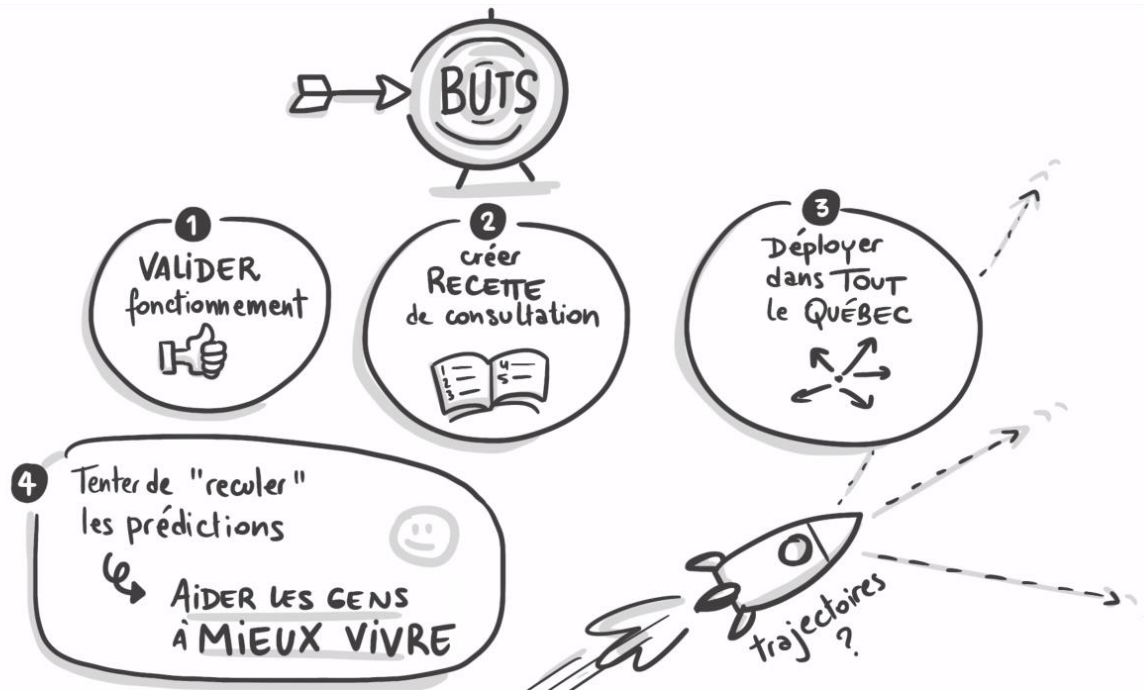 BUTS
1
VALIDER
fonctionnement
2
créer
RECETTE
de consultation
1
2
3
4
5
3
Déployer
dans TOUT
le QUÉBEC
4
Tenter de "reculer"
les prédictions
AIDER LES GENS
à MIEUX VIVRE
trajectoires
?